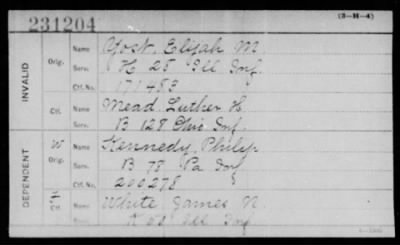 (3-H-4)
231204
INVALID
Orig.
Name Yost, Elijah M.
Serv. H 28 Ill Inf.
Ctf. No. 171483
Ctf.
Name Mead, Luther H
Serv. B 128 Ohio Inf.
DEPENDENT
W
Orig.
Name Kennedy, Philip
Serv. B 78 Pa Inf
Ctf. No. 200278
Ctf.
Name White James N
Serv. K Ill Inf